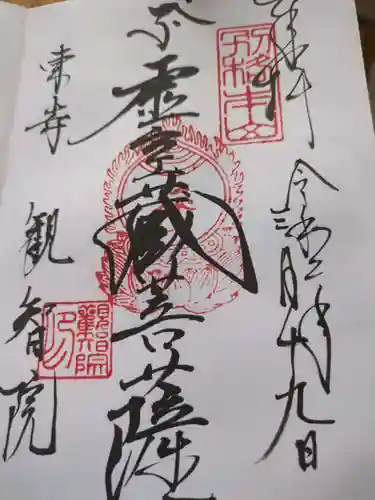 奉拝
別格本山
令和二年三月十九日
虚空蔵菩薩
東寺
観智院
觀智院印